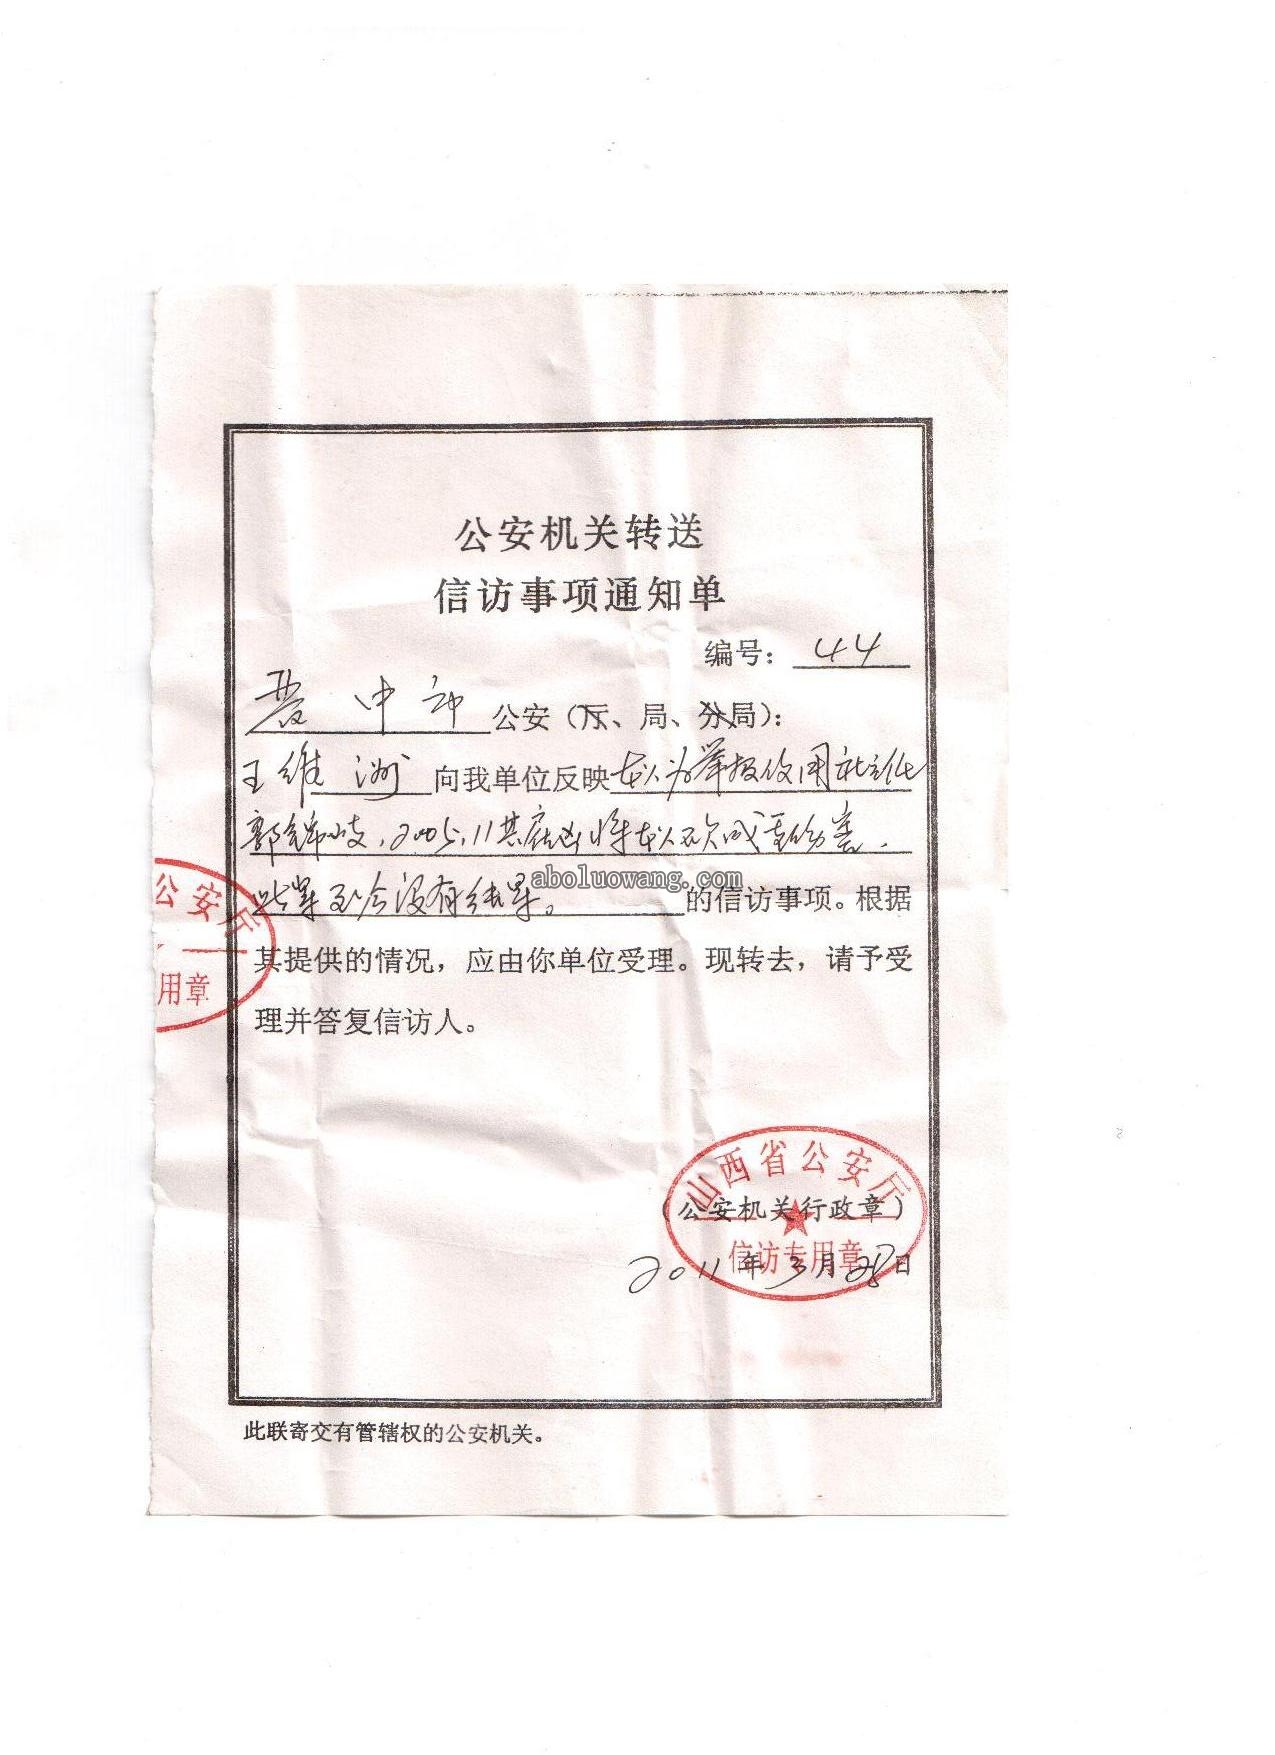 公安机关转送
信访事项通知单
编号： 44
晋中市 公安（厅、局、分局）：
王维洲 向我单位反映本人为举报信用社主任
郭锦岐，2005.11其雇凶将本人砍成重伤害，
此案至今没有结果。 的信访事项。根据
aboluowang.com
其提供的情况，应由你单位受理。现转去，请予受
理并答复信访人。
公安厅
用章
山西省公安厅
（公安机关行政章）
信访专用章
2011年3月28日
此联寄交有管辖权的公安机关。